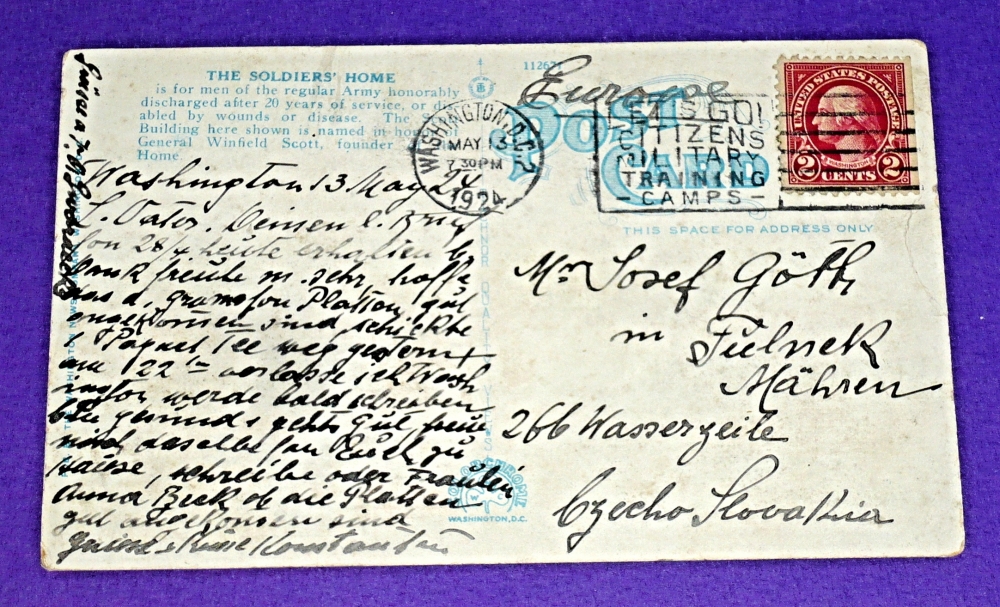 THE SOLDIERS' HOME
is for men of the regular Army honorably
discharged after 20 years of service, or dis
abled by wounds or disease. The
Building here shown is named in honor of
General Winfield Scott, founder
Home.
112671
Europe
Post
Card
WASHINGTON, D.C. 2
MAY 13
7 30 PM
1924
LET'S GO!
CITIZENS
MILITARY
TRAINING
- CAMPS -
UNITED STATES POSTAGE
WASHINGTON
2 CENTS 2
THIS SPACE FOR ADDRESS ONLY
Washington 13 May 24
L. Vater. Deinen l. Brief
von 28/4 heute erhalten
Dank freute m. sehr, hoffe
das d. gramofon Platten gut
angekommen sind, schickte
1 Paquet Tee weg gestern
am 22ten verlasse ich Wash
ington, werde bald schreiben
bin gesund & gehts gut, freue
noch dasselbe von Euch zu
hause, schreibe oder Fräulein
Anna Beck ob die Platten
gut angekommen sind
Konstantin
Mr Josef Göth
in Fulnek
Mähren
266 Wasserzeile
Czecho Slovakia
WASHINGTON, D.C.